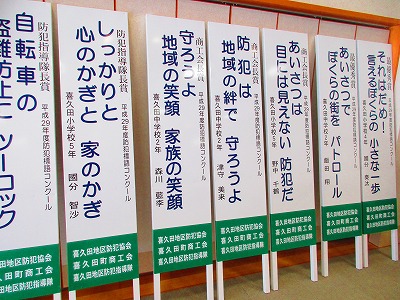 最優秀賞
平成29年度防犯標語コンクール
それはね ぼくらの 小さな一歩
言えるよ
最優秀賞
平成29年度防犯標語コンクール
あいさつで
ぼくらの街を パトロール
飯田 翔
商工会長賞
平成29年度防犯標語コンクール
あいさつは
目に見えない 防犯だ
喜久田中学校2年 野中 千鶴
商工会長賞
平成29年度防犯標語コンクール
防犯は
地域の絆で 守ろうよ
喜久田小学校 津守 美来
商工会長賞
平成29年度防犯標語コンクール
守ろうよ
地域の笑顔 家族の笑顔
喜久田中学校2年 森川 藍李
防犯指導隊長賞
平成29年度防犯標語コンクール
しっかりと
心のかぎと 家のかぎ
喜久田小学校5年 國分 智沙
防犯指導隊長賞
平成29年度防犯標語コンクール
自転車の
盗難防止に ツーロック
喜久田地区防犯協会
喜久田町商工会
喜久田地区防犯指導隊
喜久田地区防犯協会
喜久田町商工会
喜久田地区防犯指導隊
喜久田地区防犯協会
喜久田町商工会
喜久田地区防犯指導隊
喜久田地区防犯協会
喜久田町商工会
喜久田地区防犯指導隊
喜久田地区防犯協会
喜久田町商工会
喜久田地区防犯指導隊